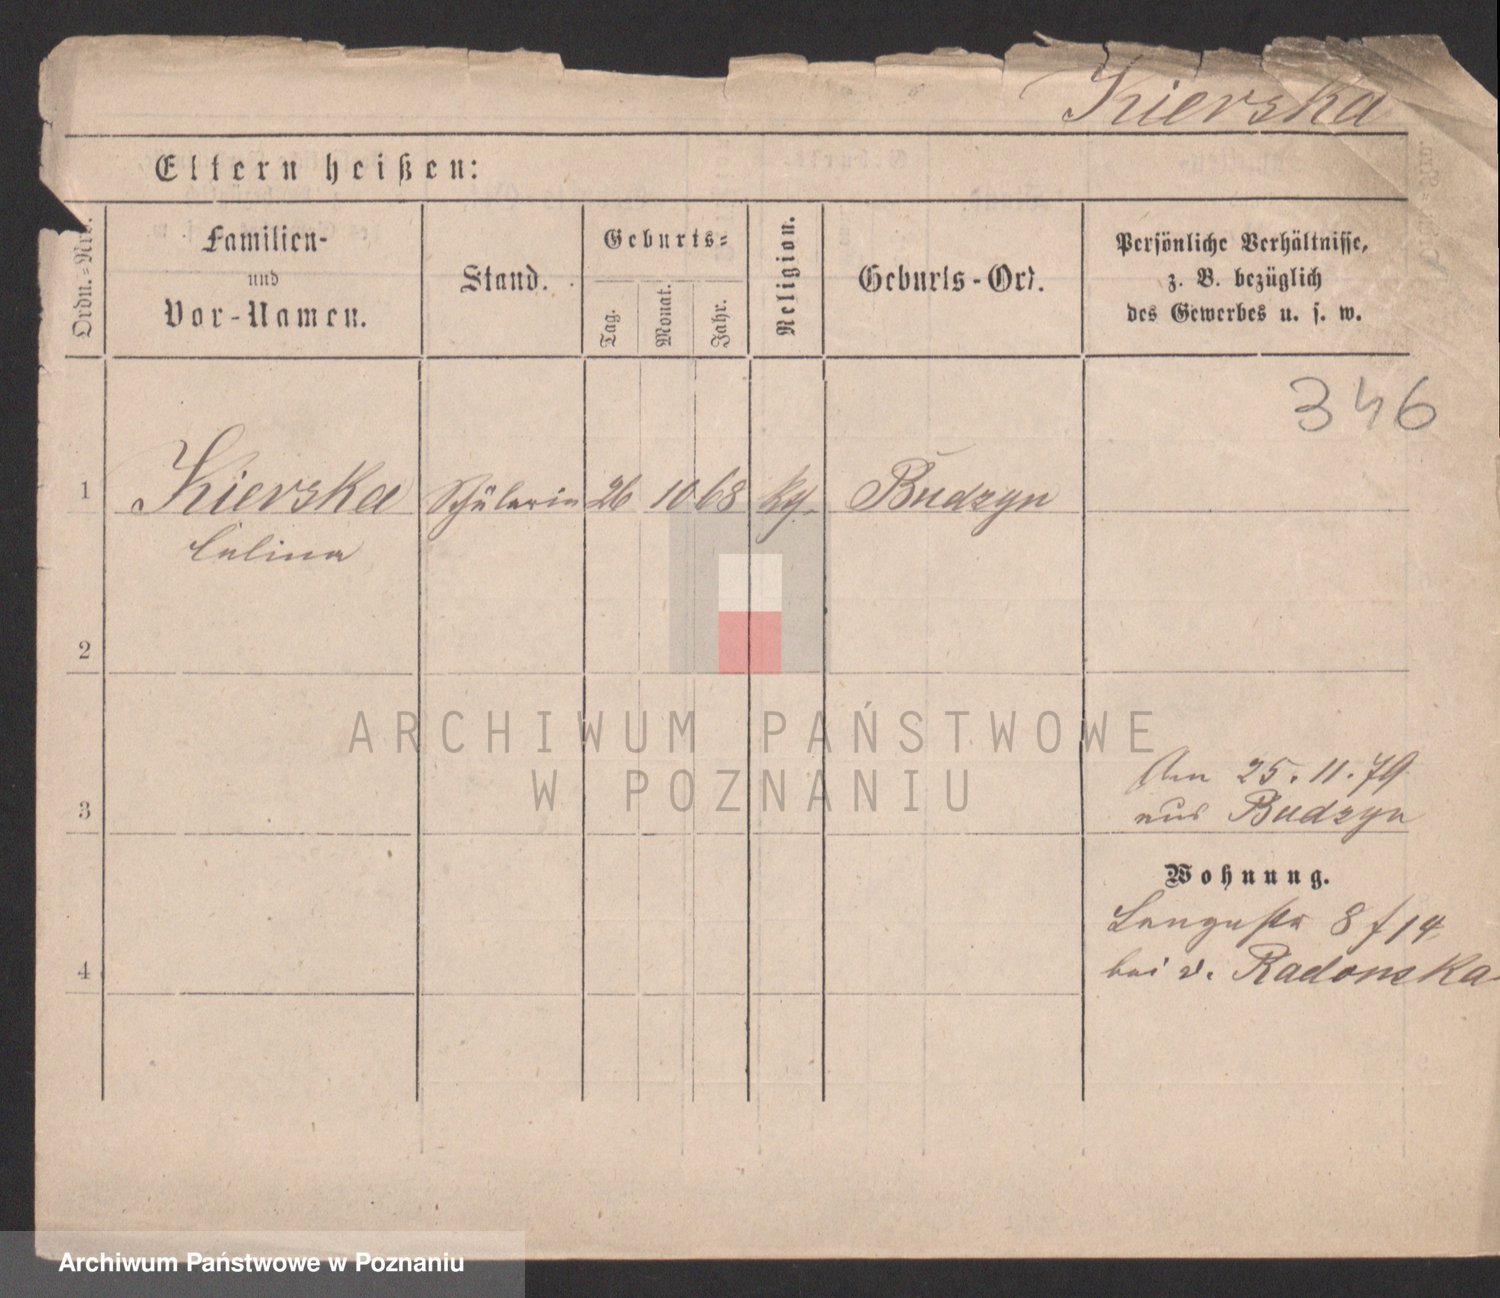 Kierska
Eltern heißen:
Ordn.-Nro.
Familien-
und
Vor-Namen.
Stand.
Geburts-
Tag.
Monat.
Jahr.
Religion.
Geburts-Ort.
Persönliche Verhältnisse,
z. B. bezüglich
des Gewerbes u. s. w.
346
1 Kierska Schülerin 26 10 68 Budzyn
Celina
2
ARCHIWUM PAŃSTWOWE
W POZNANIU
Am 25. 11. 79
aus Budzyn
3
Wohnung.
Langestr 8 / 14
bei v. Radonska
4
Archiwum Państwowe w Poznaniu